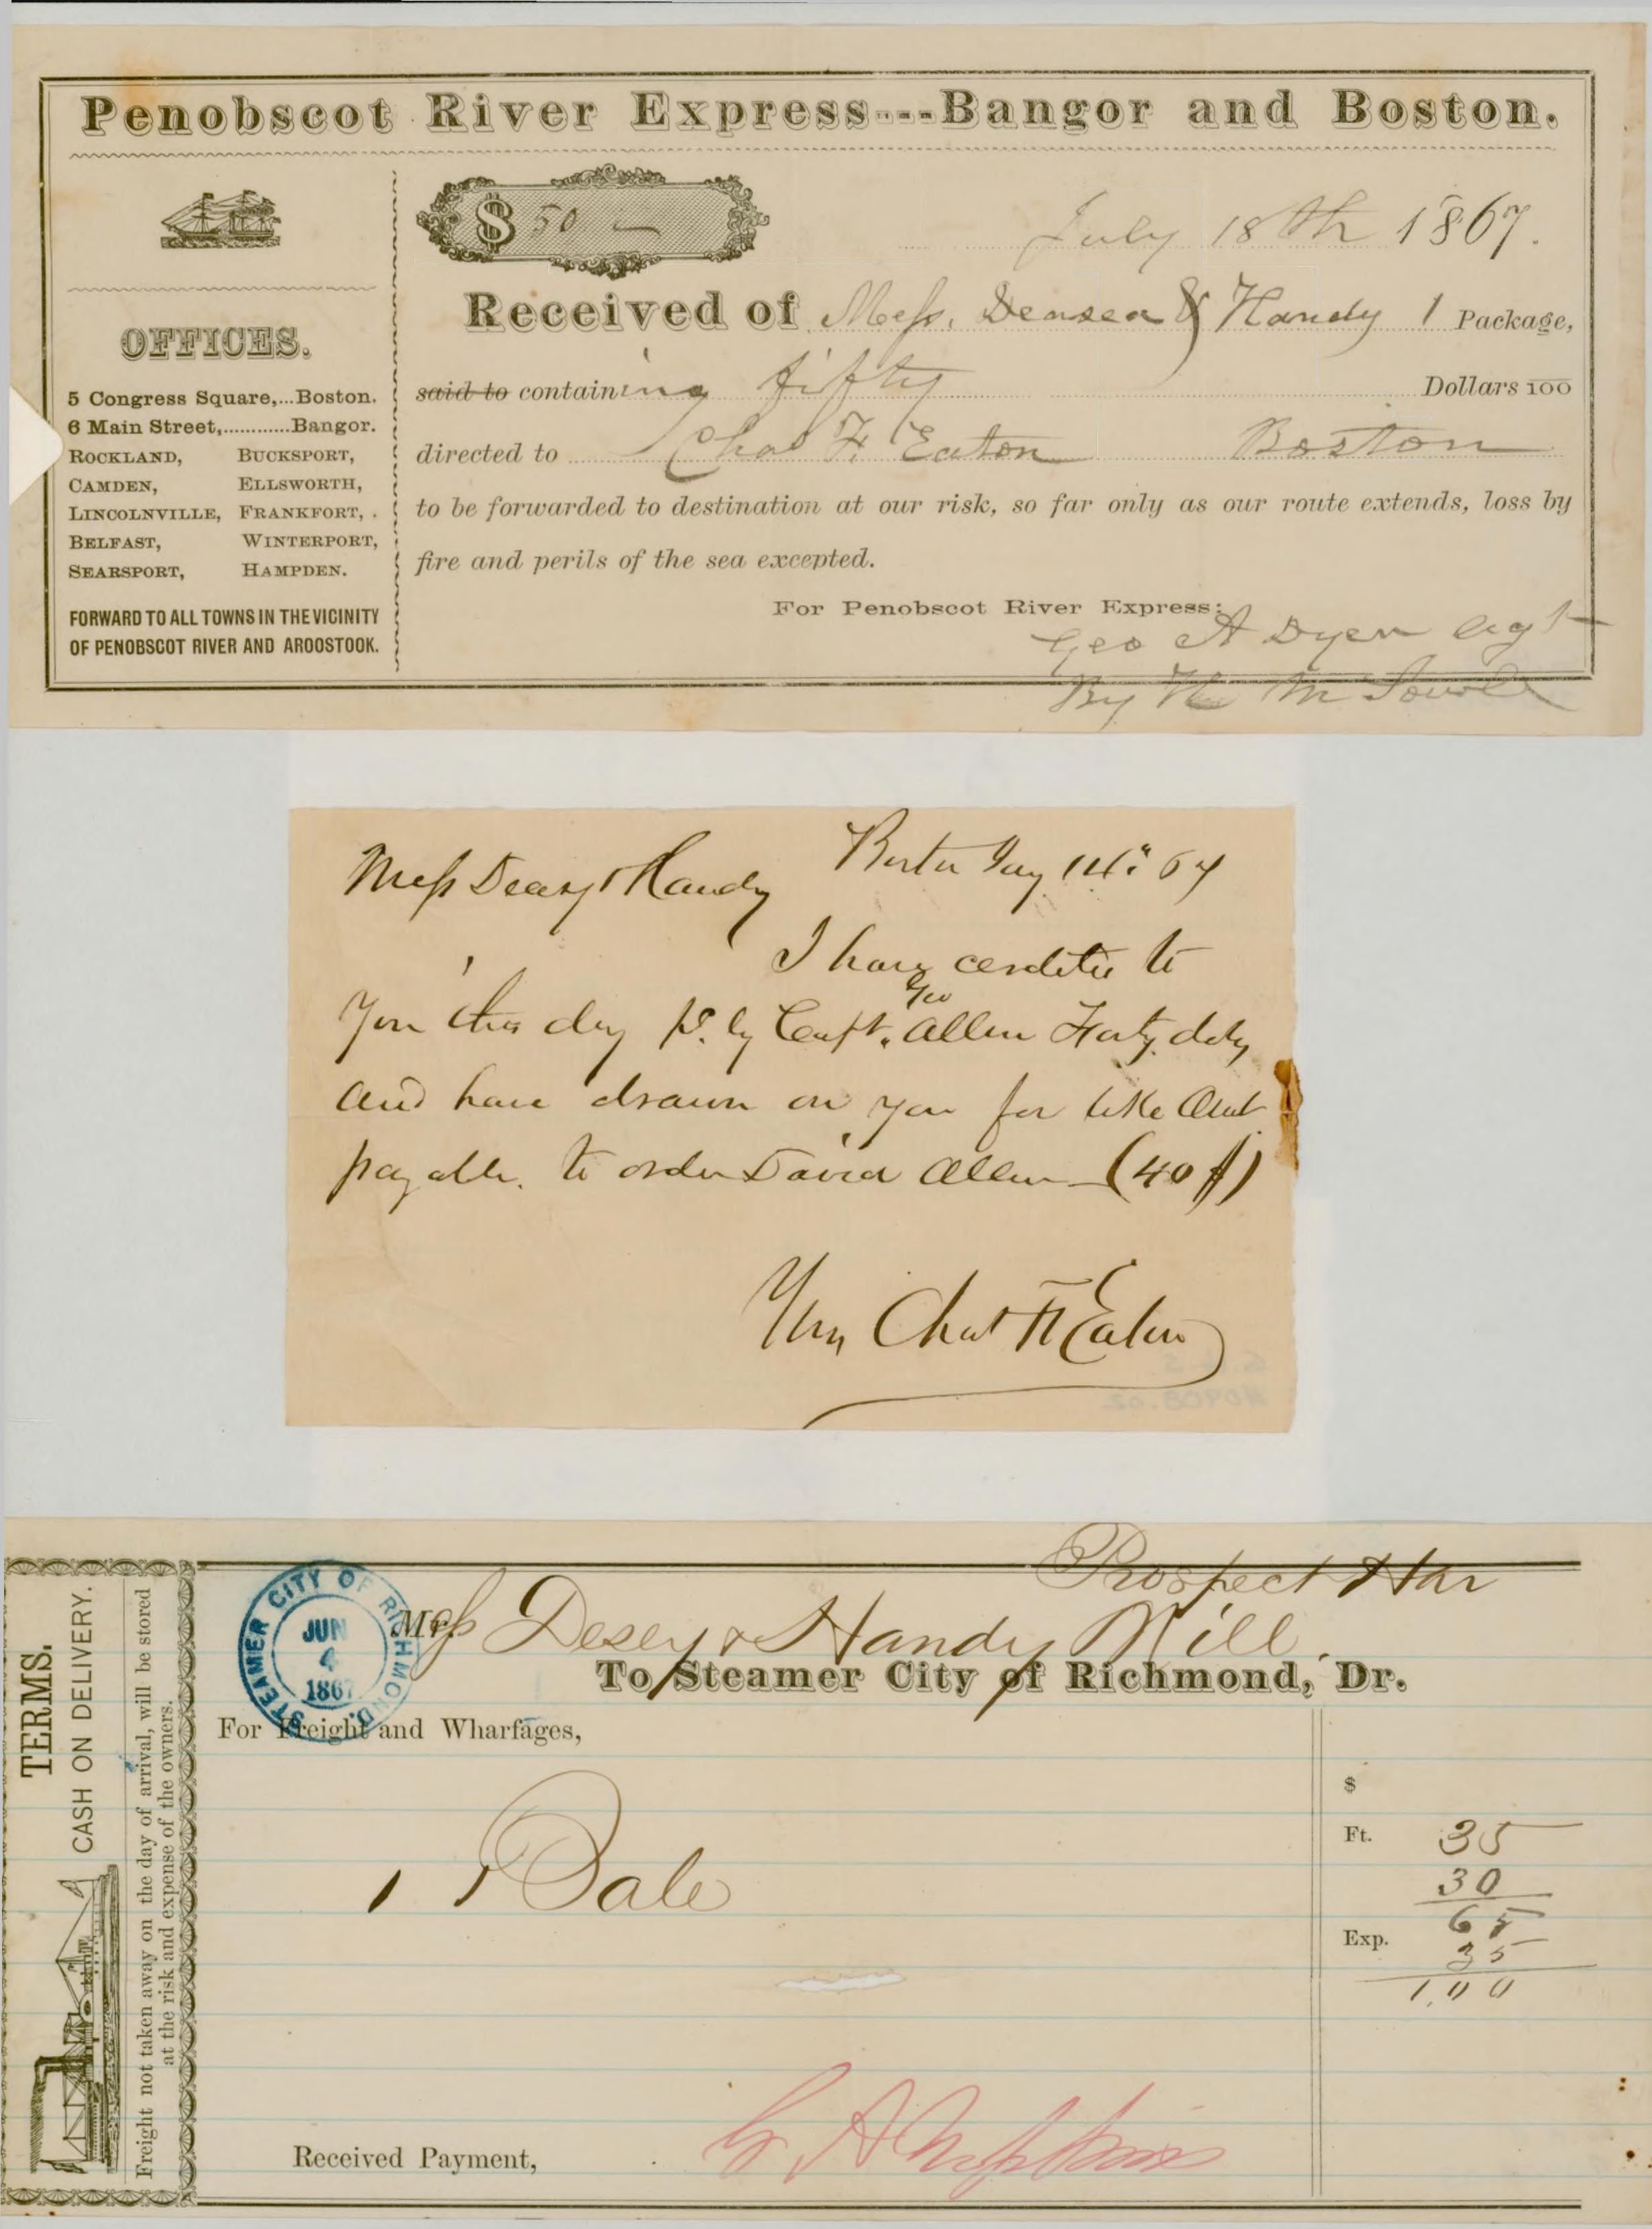 Penobscot River Express----Bangor and Boston.
$ 50
July 18th 1867.
Received of Mess. & Handy 1 Package,
said to containing fifty Dollars 100
directed to Chas H. Eaton Boston
to be forwarded to destination at our risk, so far only as our route extends, loss by
fire and perils of the sea excepted.
For Penobscot River Express:
Geo A Dyer agt
By H M
OFFICES.
5 Congress Square,...Boston.
6 Main Street,............Bangor.
ROCKLAND, BUCKSPORT,
CAMDEN, ELLSWORTH,
LINCOLNVILLE, FRANKFORT,
BELFAST, WINTERPORT,
SEARSPORT, HAMPDEN.
FORWARD TO ALL TOWNS IN THE VICINITY
OF PENOBSCOT RIVER AND AROOSTOOK.
14" 67
Mess Deasy & Handy
I have to
You this day by Capt. Geo Allen Forty
and have drawn on you for like Amt
payable. to order David Allen (40$)
Chas H Eaton
Prospect Har
Mess Desey & Handy Mill
To Steamer City of Richmond, Dr.
STEAMER CITY OF RICHMOND.
JUN
4
1867
For Freight and Wharfages,
$
1 Bale
Ft. 35
30
65
Exp. 35
1.00
Received Payment,
TERMS.
CASH ON DELIVERY.
Freight not taken away on the day of arrival, will be stored
at the risk and expense of the owners.